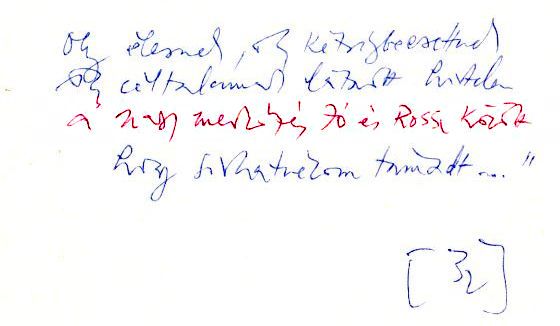 oly élesnek, oly kétségbeesettnek
oly céltalannak látszott hirtelen
a nagy mérkőzés Jó és Rossz között
hogy sírhatnékom támadt..."
[32]